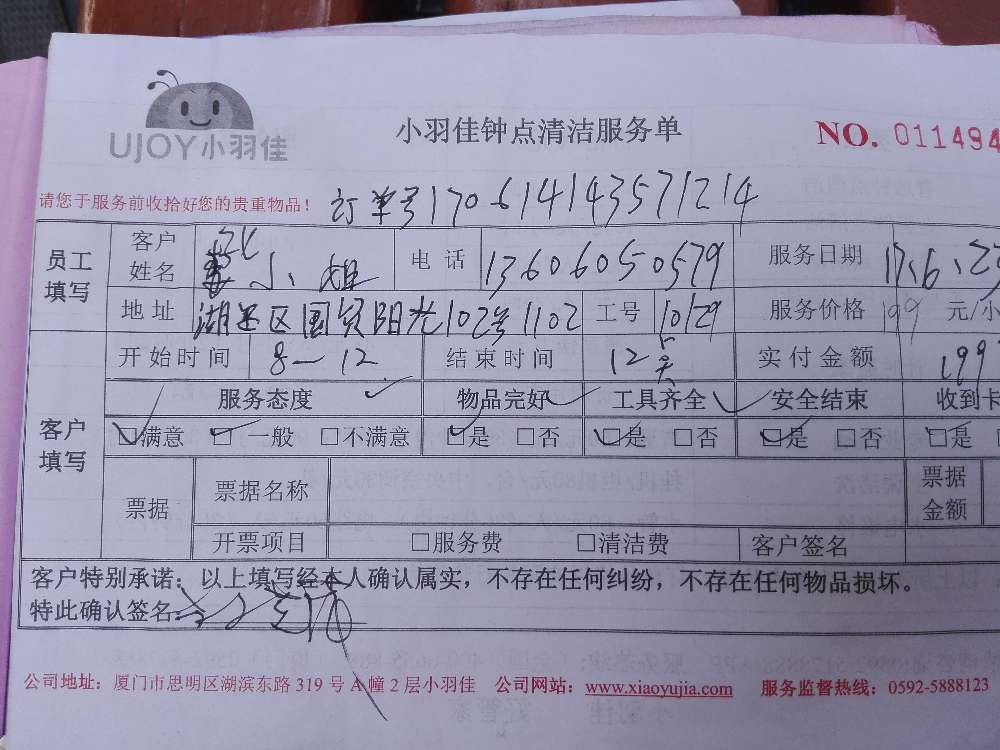 UJOY小羽佳
小羽佳钟点清洁服务单 NO. 011494
请您于服务前收拾好您的贵重物品！ 订单号170614143571214
员工填写 客户姓名 小姐 电话 13606050579 服务日期 17.6.23
地址 湖里区国贸阳光102号1102 工号 10129 服务价格 199 元/小
开始时间 8—12 结束时间 12点 实付金额 199
客户填写 服务态度 物品完好 工具齐全 安全结束 收到卡
□满意 □一般 □不满意 □是 □否 □是 □否 □是 □否 □是
票据 票据名称 票据金额
开票项目 □服务费 □清洁费 客户签名
客户特别承诺：以上填写经本人确认属实，不存在任何纠纷，不存在任何物品损坏。
特此确认签名：
公司地址：厦门市思明区湖滨东路 319 号 A 幢 2 层小羽佳 公司网站：www.xiaoyujia.com 服务监督热线：0592-5888123